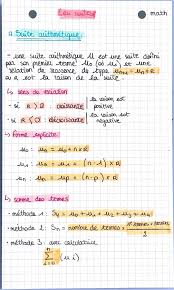 Les suites
math
a. Suite arithmétique
- une suite arithmétique U est une suite défini
par son premier terme U₀ (ou U₁) et une
relation de récurrence du type Uₙ₊₁ = Uₙ + R
où R est la raison de la suite.
↳ sens de variation
- si R > 0 croissante la raison est positive
- si R < 0 décroissante la raison est négative
↳ forme explicite
U₀ : Uₙ = U₀ + n × R
U₁ : Uₙ = U₁ + (n - 1) × R
Uₚ : Uₙ = Uₚ + (n - p) × R
↳ somme des termes
• méthode 1 : S₄ = U₀ + U₁ + U₂ + U₃ + U₄
• méthode 2 : Sₙ = nombre de termes ×
2
• méthode 3 : avec calculatrice
n
Σ (Ui)
i=0